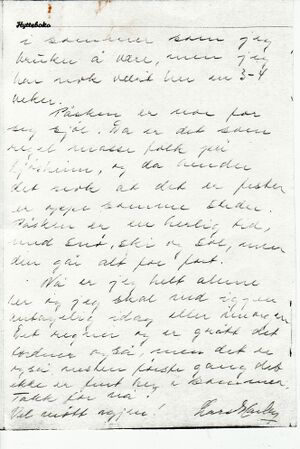 Hytteboka
i sommer som jeg
bruker å være, men jeg
har nok vært her en 3-4
veker.
Påsken er noe for
seg sjøl. Da er det som
regel masse folk på
og da hender
det nok at det er fester
er oppe samme steder.
Påsken er en herlig tid,
med Snø, Ski og Sol, men
den går alt for fort.
Nå er jeg helt alene
her og jeg skal ned igjen
antagelig idag eller imorgen.
Det regner og er grått det
tordner også, men det er
også nesten første gang det
ikke er fint her i sommer.
Takk for nå!
Vel møtt igjen!